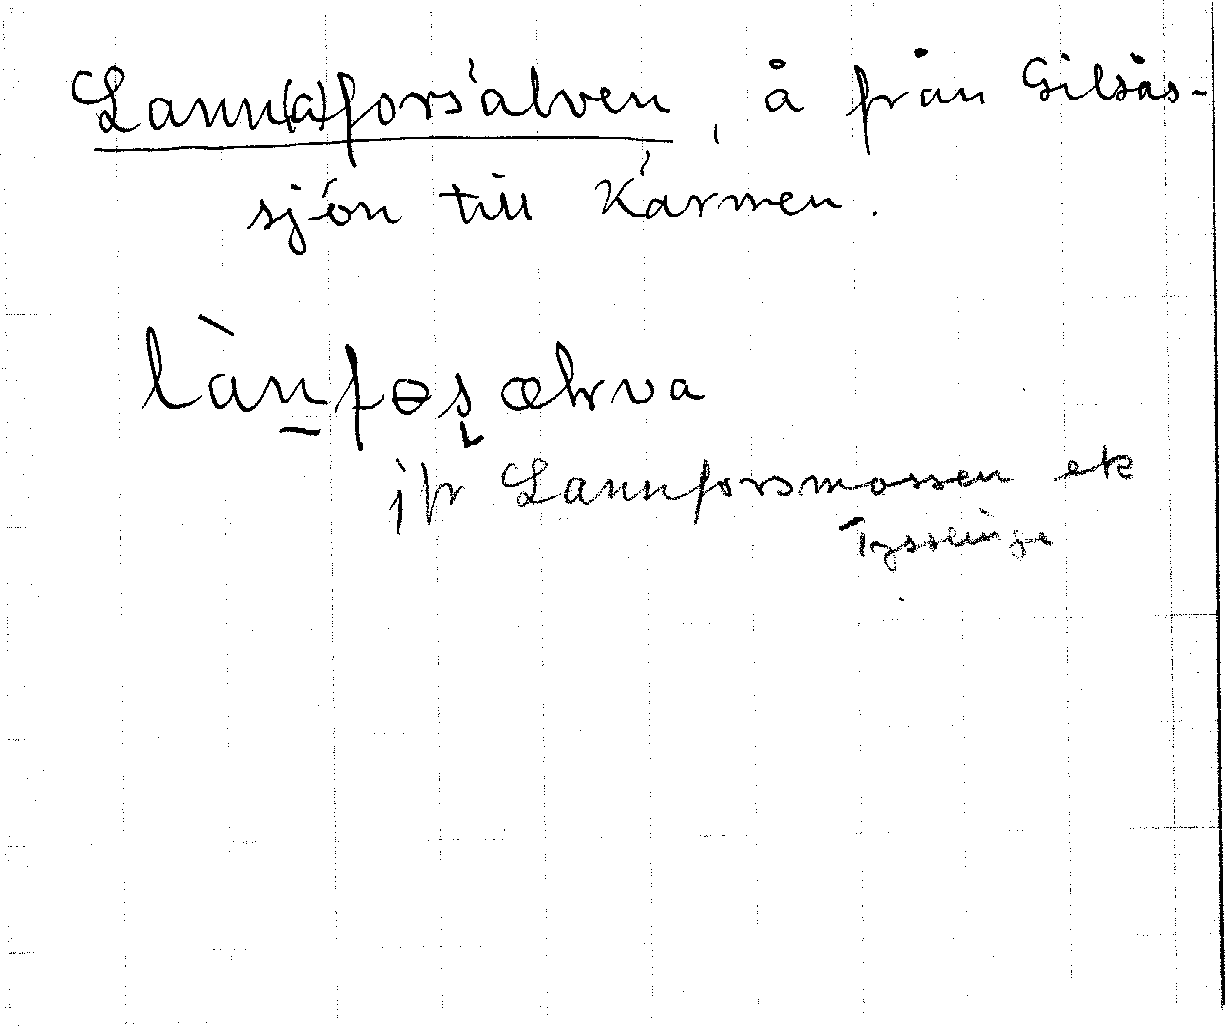 Lann(a)forsälven, å från Gilsås-
sjön till Kärmen.
lànfɵʂælrva
jfr Lannforsmossen ek
Tysslinge